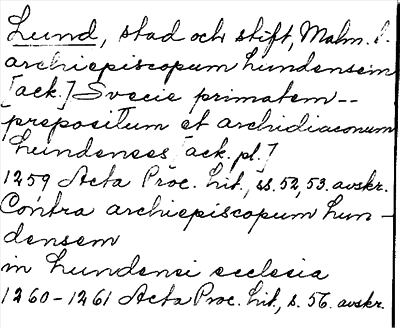 Lund, stad och stift, Malm. l.
archiepiscopum Lundensem
[ack.] Svecie primatem --
prepositum et archidiaconum
Lundenses [ack. pl.]
1259 Acta Proc. Lit., ss. 52, 53. avskr.
Contra archiepiscopum Lun-
densem
in Lundensi ecclesia
1260-1261 Acta Proc. Lit., s. 56. avskr.